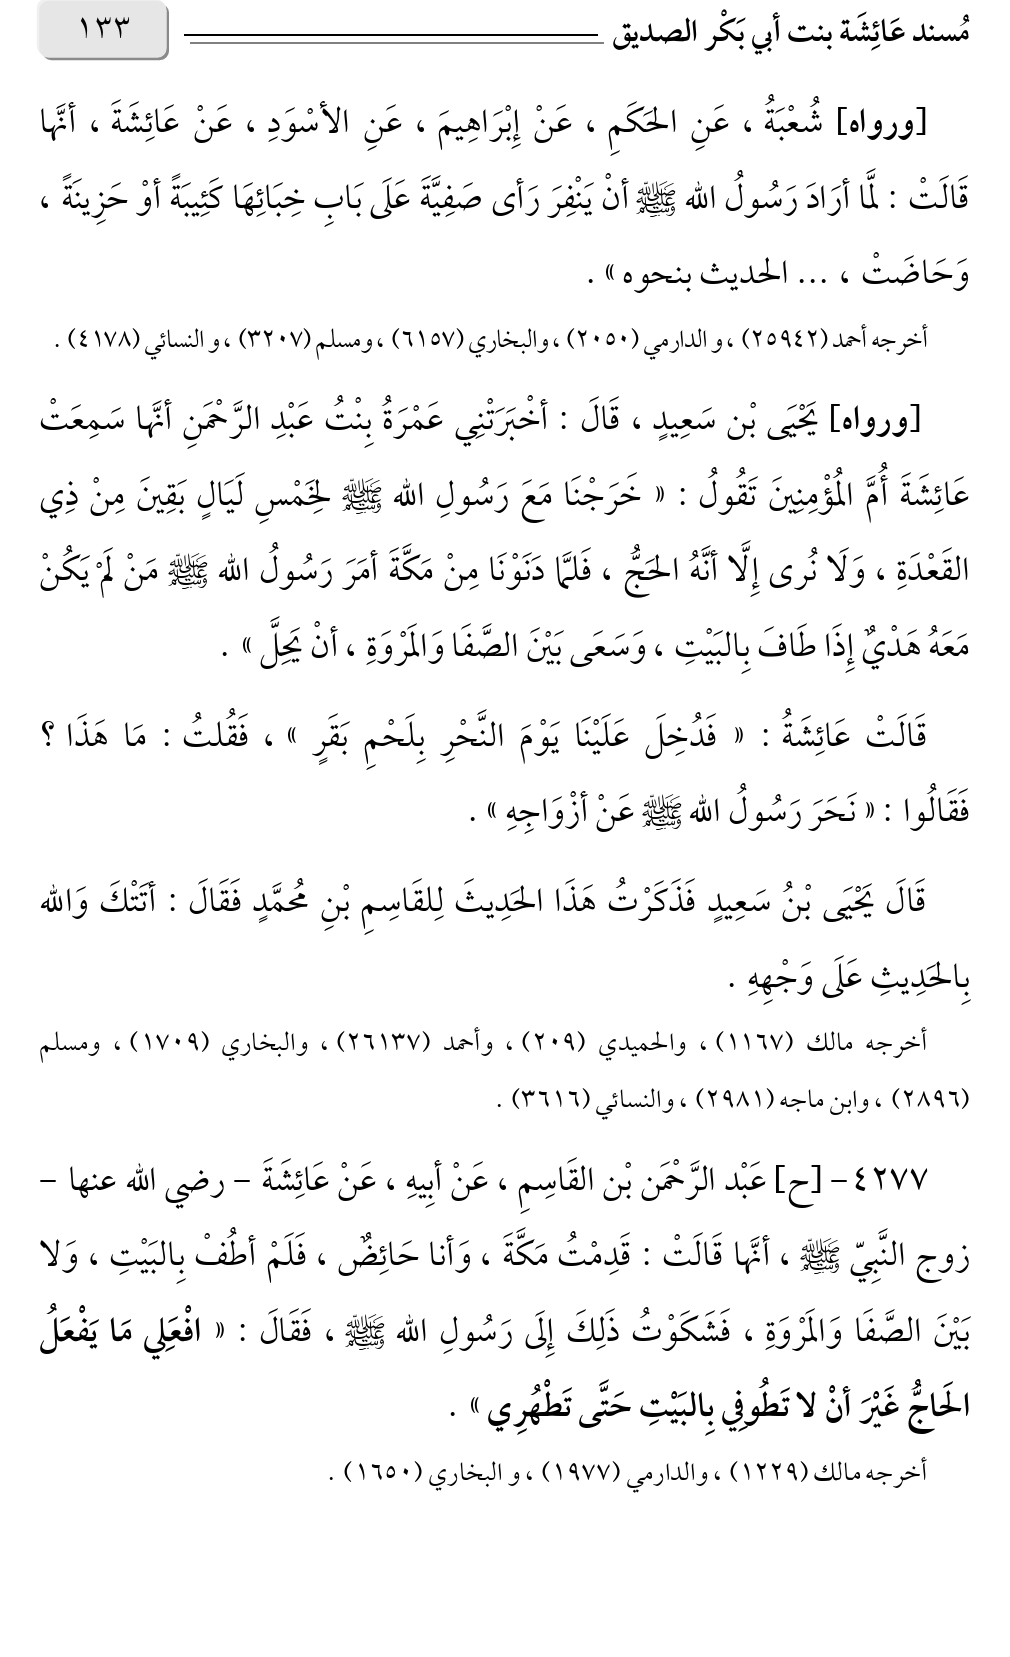 مُسند عَائِشَة بنت أبي بَكْر الصديق
١٣٣
[ورواه] شُعْبَةُ ، عَنِ الحَكَمِ ، عَنْ إِبْرَاهِيمَ ، عَنِ الأسْوَدِ ، عَنْ عَائِشَةَ ، أنَّها
قَالَتْ : لمَّا أرَادَ رَسُولُ الله ﷺ أنْ يَنْفِرَ رَأى صَفِيَّةَ عَلَى بَابِ خِبَائِهَا كَئِيبَةً أوْ حَزِينَةً ،
وَحَاضَتْ ، ... الحديث بنحوه » .
أخرجه أحمد (٢٥٩٤٢) ، و الدارمي (٢٠٥٠) ، والبخاري (٦١٥٧) ، ومسلم (٣٢٠٧) ، و النسائي (٤١٧٨) .
[ورواه] يَحْيَى بْن سَعِيدٍ ، قَالَ : أخْبَرَتْنِي عَمْرَةُ بِنْتُ عَبْدِ الرَّحْمَنِ أنَّها سَمِعَتْ
عَائِشَةَ أُمَّ المُؤْمِنِينَ تَقُولُ : « خَرَجْنَا مَعَ رَسُولِ الله ﷺ لِخَمْسِ لَيَالٍ بَقِينَ مِنْ ذِي
القَعْدَةِ ، وَلَا نُرى إِلَّا أنَّهُ الحَجُّ ، فَلمَّا دَنَوْنَا مِنْ مَكَّةَ أمَرَ رَسُولُ الله ﷺ مَنْ لَمْ يَكُنْ
مَعَهُ هَدْيٌ إِذَا طَافَ بِالبَيْتِ ، وَسَعَى بَيْنَ الصَّفَا وَالمَرْوَةِ ، أنْ يَحِلَّ » .
قَالَتْ عَائِشَةُ : « فَدُخِلَ عَلَيْنَا يَوْمَ النَّحْرِ بِلَحْمِ بَقَرٍ » ، فَقُلتُ : مَا هَذَا ؟
فَقَالُوا : « نَحَرَ رَسُولُ الله ﷺ عَنْ أزْوَاجِهِ » .
قَالَ يَحْيَى بْنُ سَعِيدٍ فَذَكَرْتُ هَذَا الحَدِيثَ لِلقَاسِمِ بْنِ مُحمَّدٍ فَقَالَ : أتَتْكَ وَالله
بِالحَدِيثِ عَلَى وَجْهِهِ .
أخرجه مالك (١١٦٧) ، والحميدي (٢٠٩) ، وأحمد (٢٦١٣٧) ، والبخاري (١٧٠٩) ، ومسلم
(٢٨٩٦) ، وابن ماجه (٢٩٨١) ، والنسائي (٣٦١٦) .
٤٢٧٧ – [ح] عَبْد الرَّحْمَن بْن القَاسِمِ ، عَنْ أبِيهِ ، عَنْ عَائِشَةَ – رضي الله عنها –
زوج النَّبِيّ ﷺ ، أنَّها قَالَتْ : قَدِمْتُ مَكَّةَ ، وَأنا حَائِضٌ ، فَلَمْ أطُفْ بِالبَيْتِ ، وَلا
بَيْنَ الصَّفَا وَالمَرْوَةِ ، فَشَكَوْتُ ذَلِكَ إِلَى رَسُولِ الله ﷺ ، فَقَالَ : « افْعَلِي مَا يَفْعَلُ
الحَاجُّ غَيْرَ أنْ لا تَطُوفِي بِالبَيْتِ حَتَّى تَطْهُرِي » .
أخرجه مالك (١٢٢٩) ، والدارمي (١٩٧٧) ، و البخاري (١٦٥٠) .